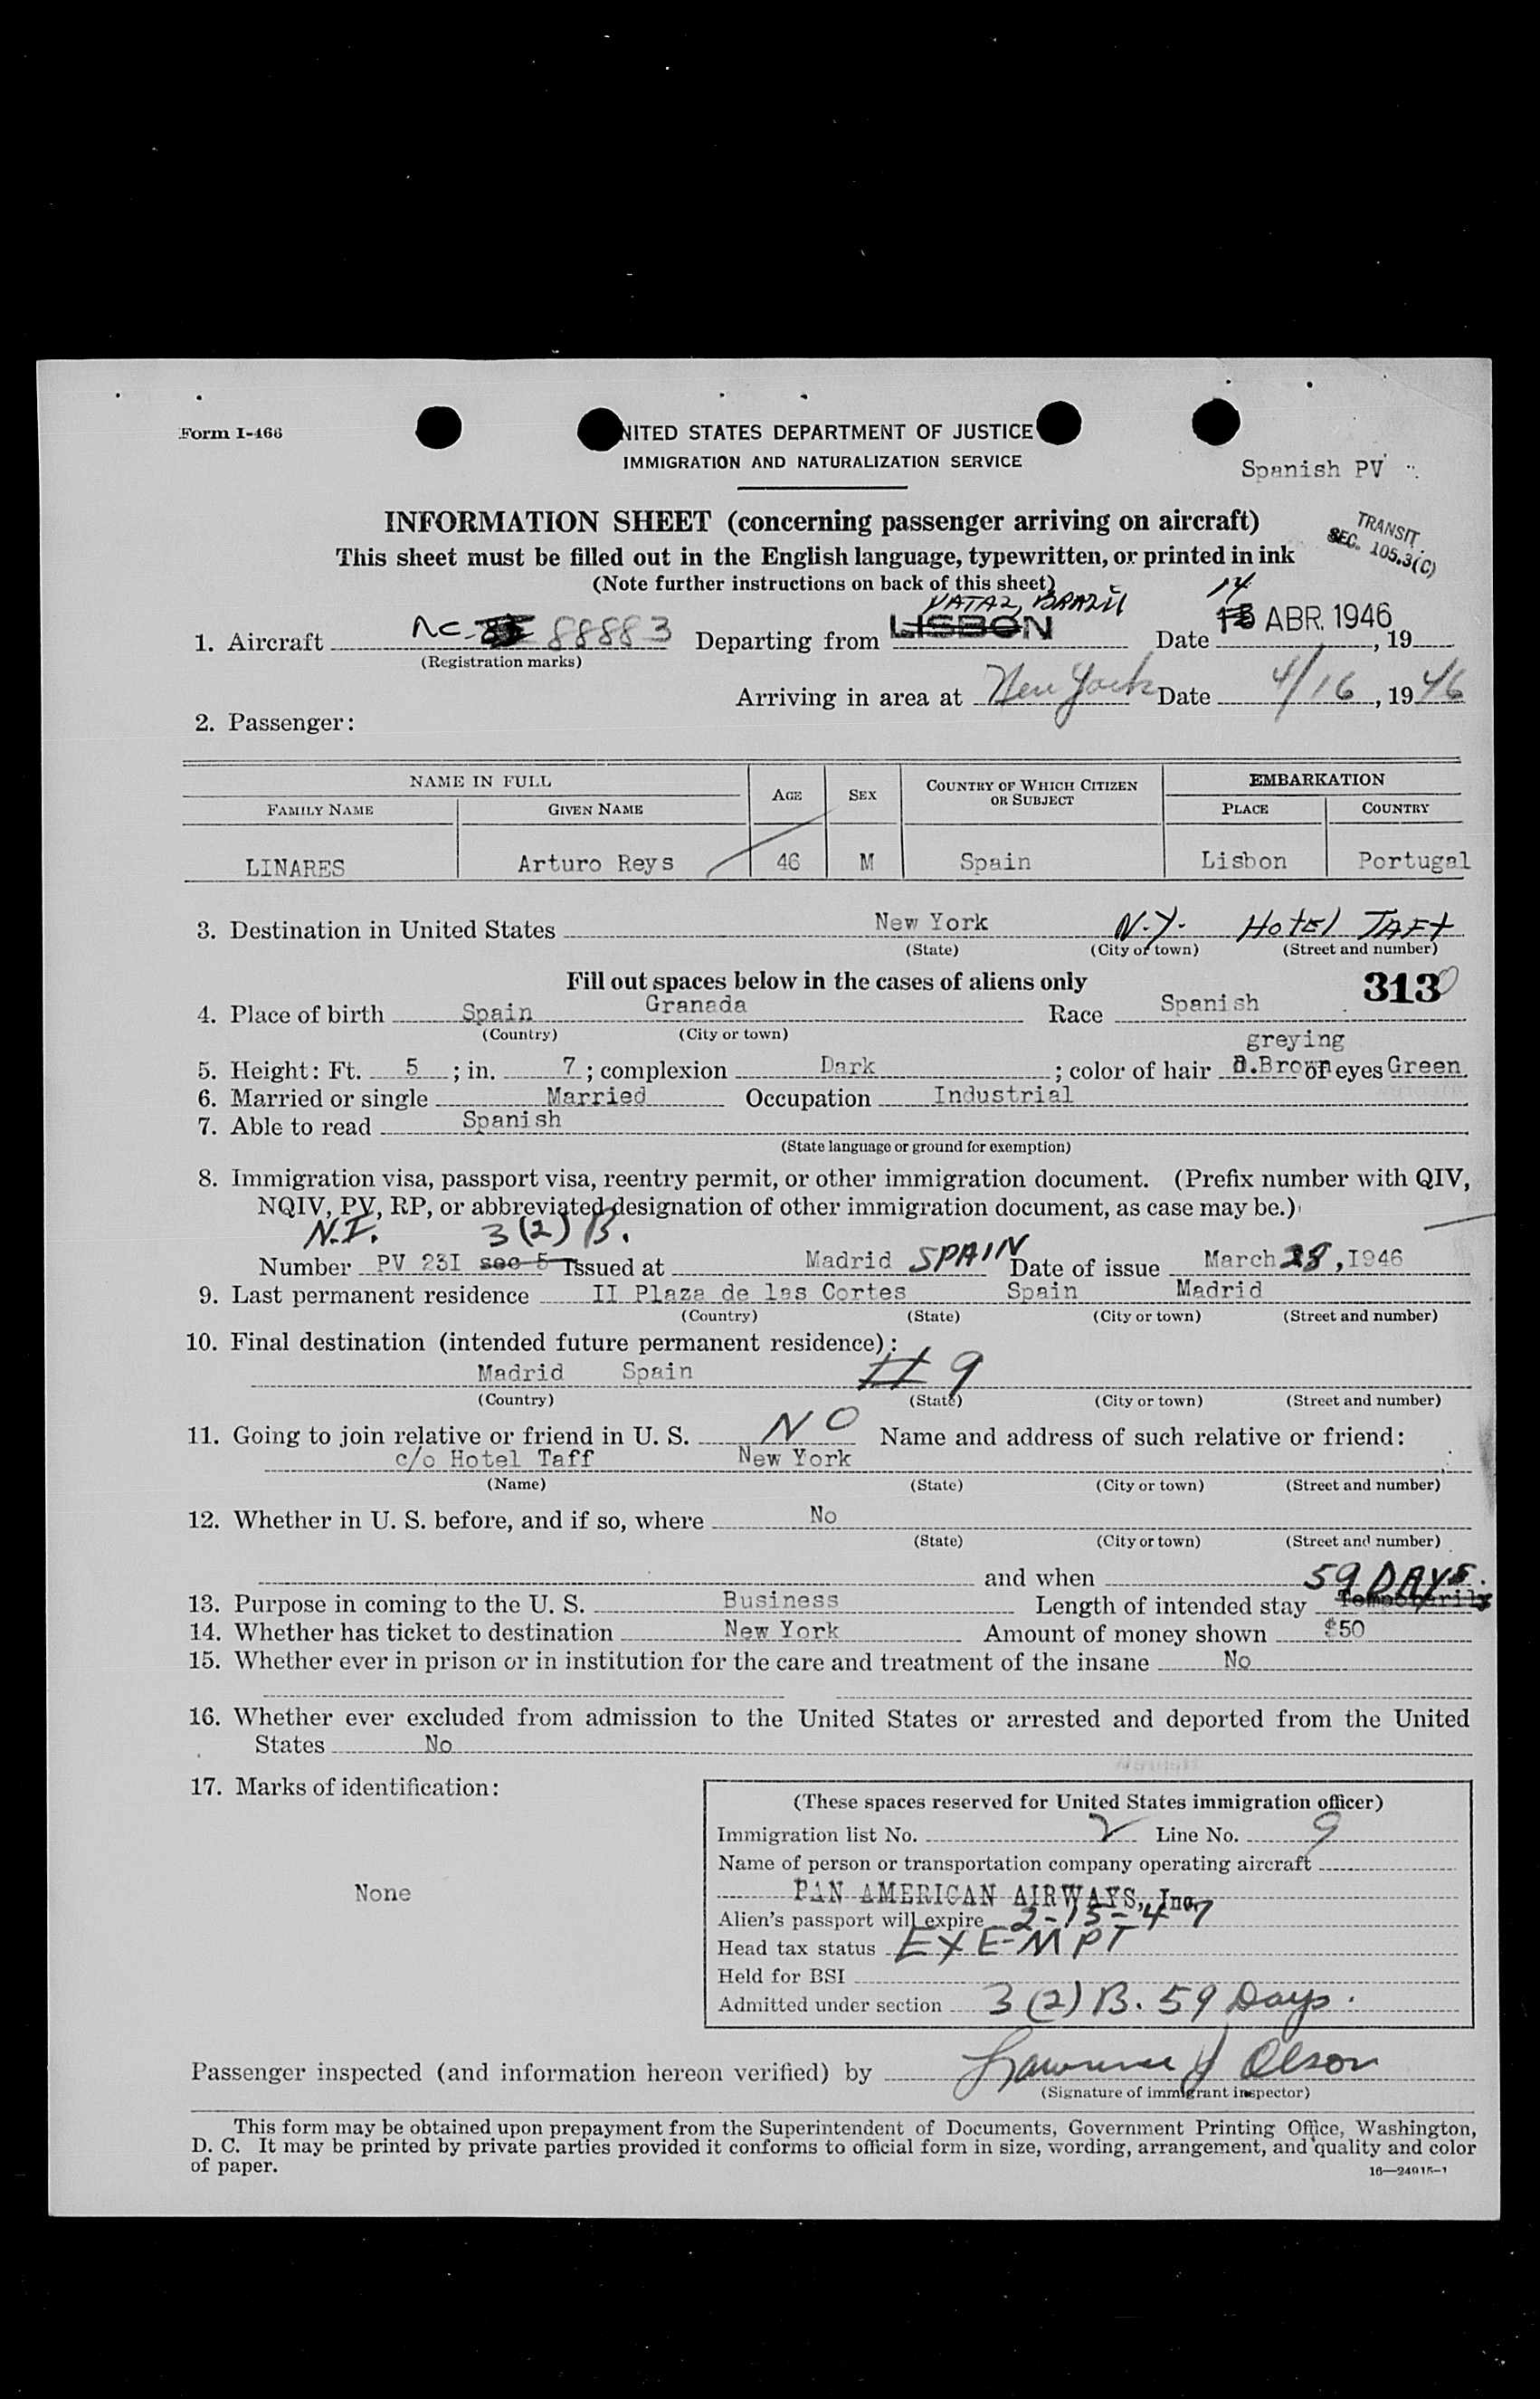 Form I-466
UNITED STATES DEPARTMENT OF JUSTICE
IMMIGRATION AND NATURALIZATION SERVICE
Spanish PV
INFORMATION SHEET (concerning passenger arriving on aircraft)
TRANSIT
SEC. 105.3(C)
This sheet must be filled out in the English language, typewritten, or printed in ink
(Note further instructions on back of this sheet)
NATAL, BRAZIL
14
1. Aircraft NC- 88883 Departing from LISBON Date ABR. 1946, 19
(Registration marks)
Arriving in area at New York Date 4/16, 1946
2. Passenger:
NAME IN FULL
AGE SEX COUNTRY OF WHICH CITIZEN OR SUBJECT EMBARKATION
FAMILY NAME GIVEN NAME PLACE COUNTRY
LINARES Arturo Reys 46 M Spain Lisbon Portugal
3. Destination in United States New York N.Y. HOTEL TAFT
(State) (City or town) (Street and number)
Fill out spaces below in the cases of aliens only
3130
4. Place of birth Spain Granada Race Spanish
(Country) (City or town)
greying
5. Height: Ft. 5 ; in. 7 ; complexion Dark ; color of hair d.Brown of eyes Green
6. Married or single Married Occupation Industrial
7. Able to read Spanish
(State language or ground for exemption)
8. Immigration visa, passport visa, reentry permit, or other immigration document. (Prefix number with QIV,
NQIV, PV, RP, or abbreviated designation of other immigration document, as case may be.)
N.I. 3(2)B.
Number PV 23I sec 5 Issued at Madrid SPAIN Date of issue March 28, I946
9. Last permanent residence II Plaza de las Cortes Spain Madrid
(Country) (State) (City or town) (Street and number)
10. Final destination (intended future permanent residence):
Madrid Spain # 9
(Country) (State) (City or town) (Street and number)
11. Going to join relative or friend in U. S. NO Name and address of such relative or friend:
c/o Hotel Taff New York
(Name) (State) (City or town) (Street and number)
12. Whether in U. S. before, and if so, where No
(State) (City or town) (Street and number)
and when
59 DAYS.
13. Purpose in coming to the U. S. Business Length of intended stay Temporarily
14. Whether has ticket to destination New York Amount of money shown $50
15. Whether ever in prison or in institution for the care and treatment of the insane No
16. Whether ever excluded from admission to the United States or arrested and deported from the United
States No
17. Marks of identification:
None
(These spaces reserved for United States immigration officer)
Immigration list No. 2 Line No. 9
Name of person or transportation company operating aircraft
PAN AMERICAN AIRWAYS, Inc.
Alien's passport will expire 2-15-47
Head tax status EXEMPT
Held for BSI
Admitted under section 3(2)B. 59 Days.
Passenger inspected (and information hereon verified) by Lawrence J Olson
(Signature of immigrant inspector)
This form may be obtained upon prepayment from the Superintendent of Documents, Government Printing Office, Washington,
D. C. It may be printed by private parties provided it conforms to official form in size, wording, arrangement, and quality and color
of paper.
16—24915-1